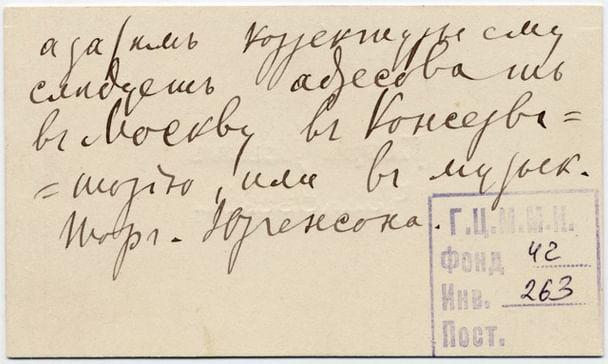 а затѣмъ корректуры ему
слѣдуетъ адресовать
въ Москву въ Консерва=
=торію, или въ музык.
торг. Юргенсона.
Г.Ц.М.М.К.
Фонд 42
Инв. 263
Пост.